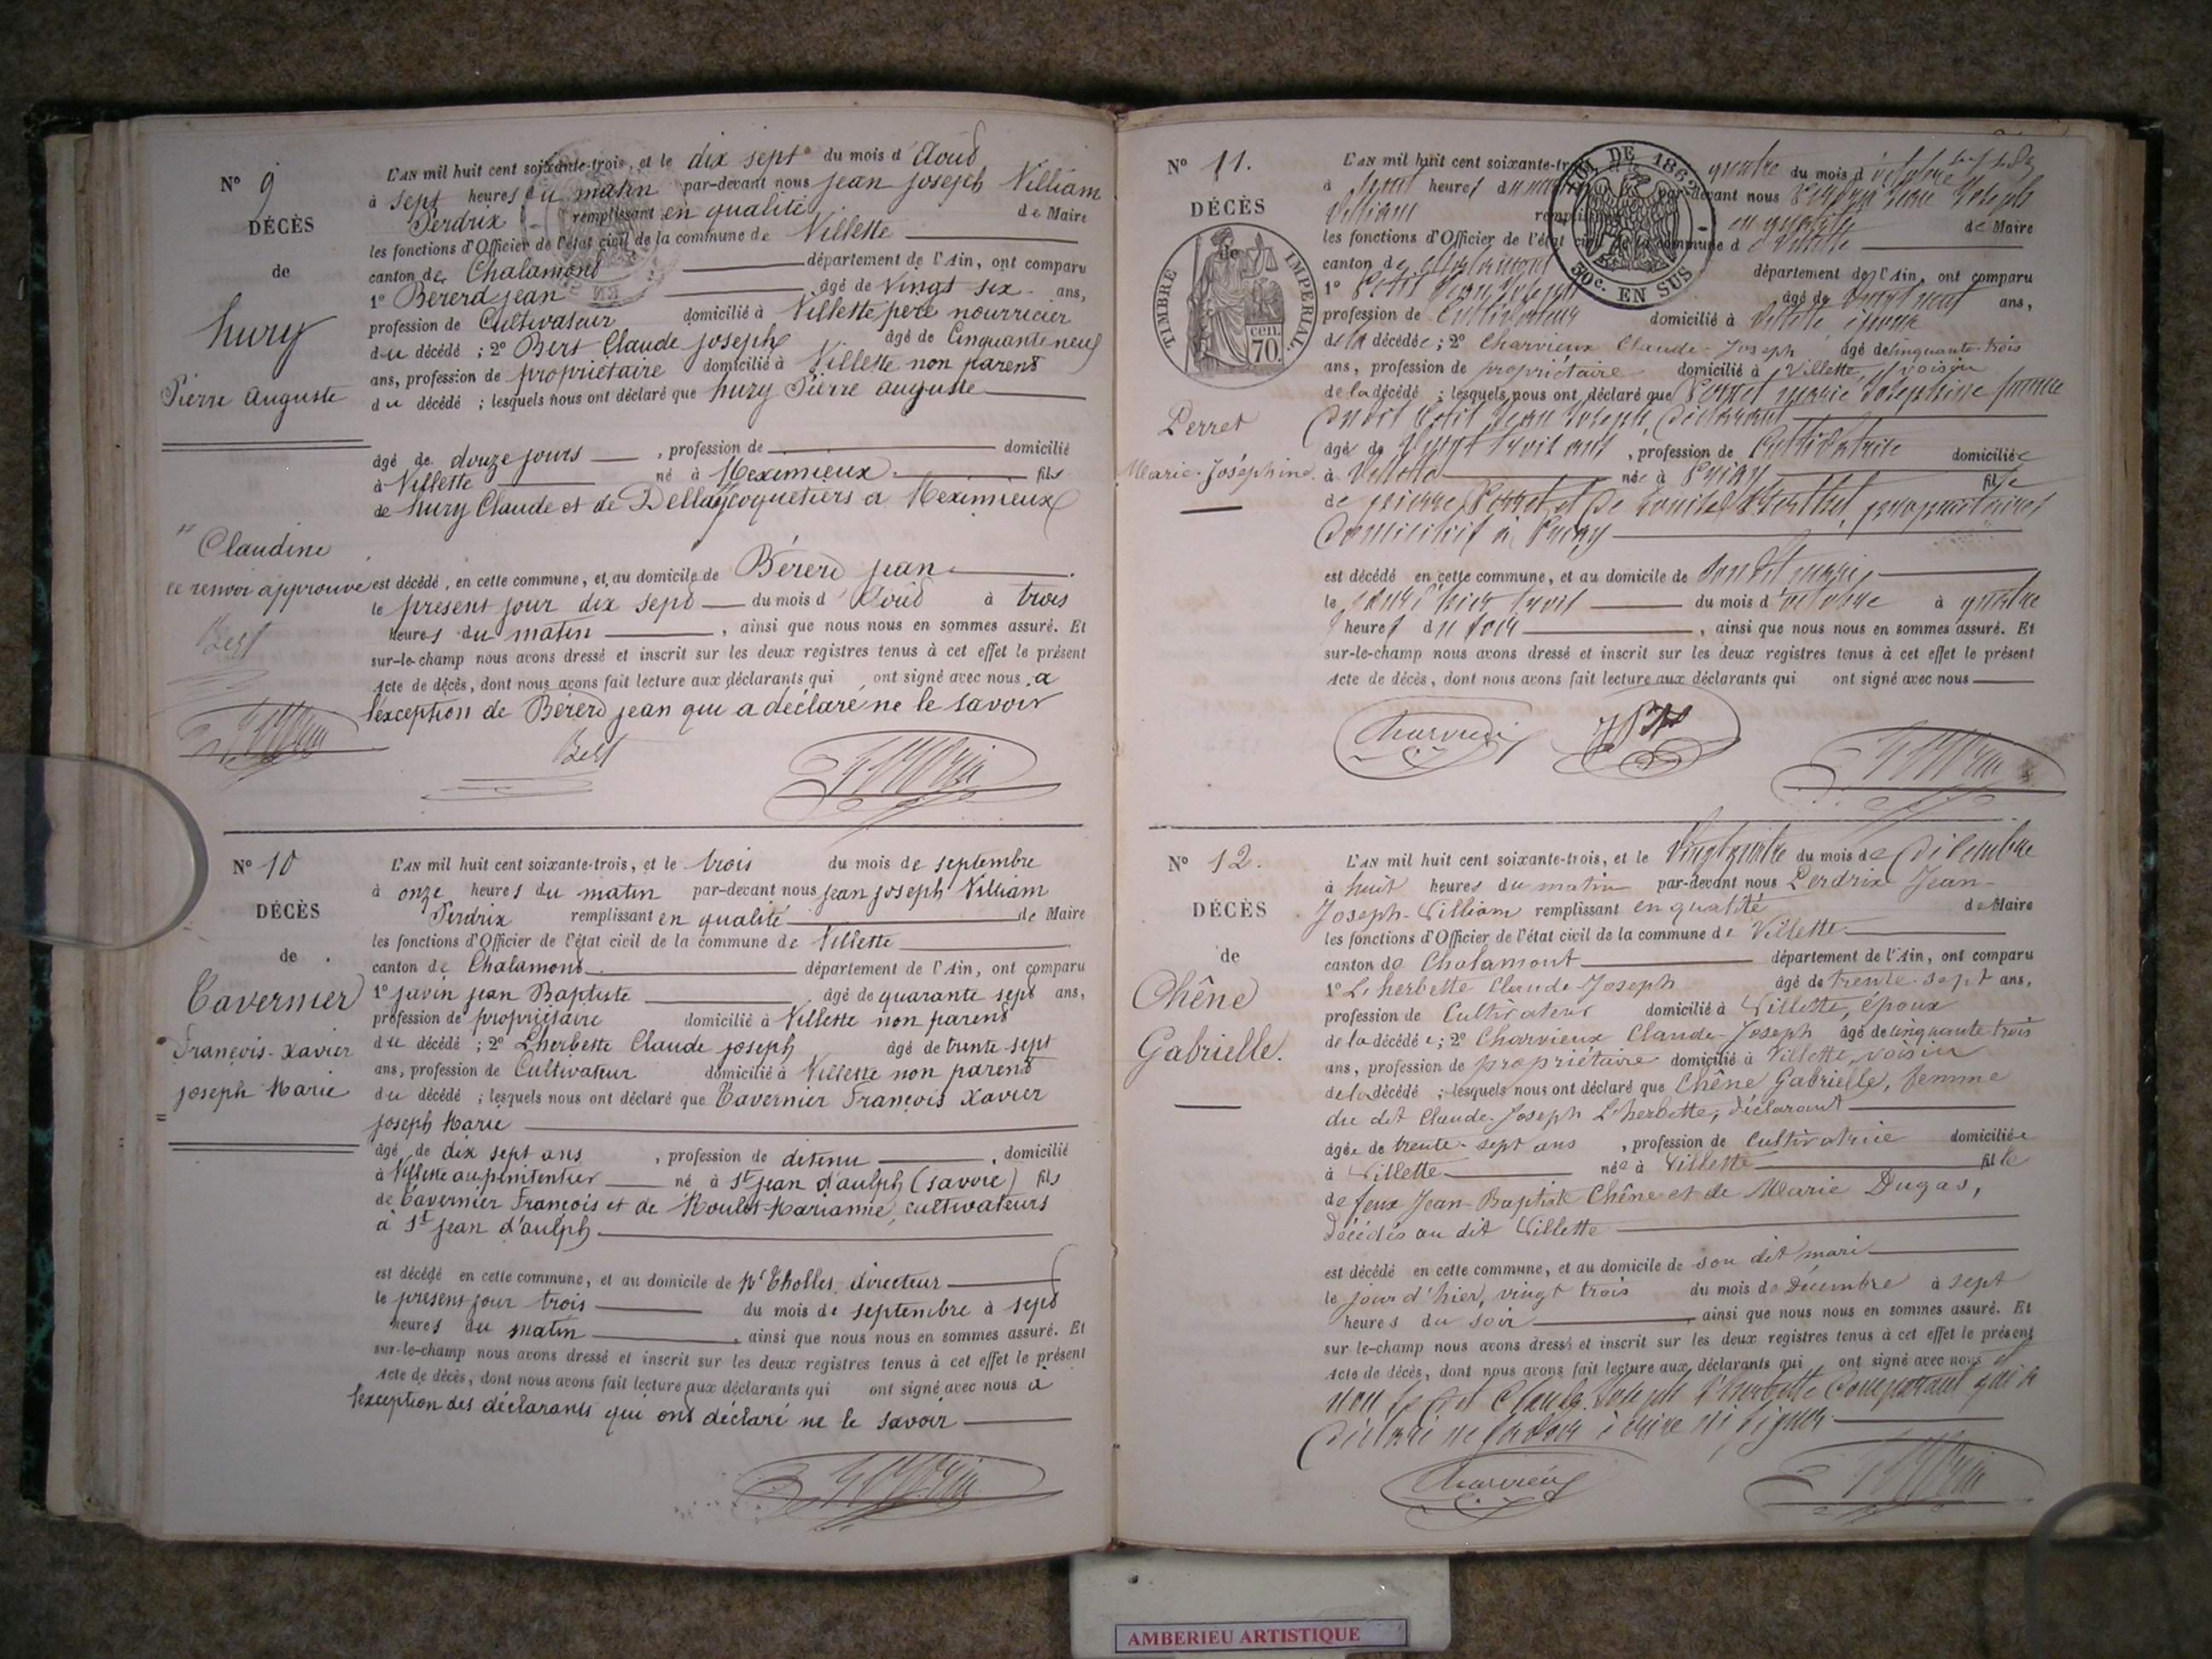 N° 9
DÉCÈS
de
hury
Pierre Auguste
"Claudine
ce renvoi approuvé
Best
L'AN mil huit cent soixante-trois, et le dix sept du mois d'Aoud
à sept heures du matin par-devant nous jean joseph Villiam
Perdrix remplissant en qualité de Maire
les fonctions d'Officier de l'état civil de la commune de Villette
canton de Chalamond département de l'Ain, ont comparu
1° Bererd jean âgé de vingt six ans,
profession de Cultivateur domicilié à Villette père nourricier
du décédé ; 2° Bert Claude joseph âgé de Cinquante neuf
ans, profession de propriétaire domicilié à Villette non parent
du décédé ; lesquels nous ont déclaré que hury Pierre auguste
âgé de douze jours , profession de domicilié
à Villette né à Meximieux fils
de hury Claude et de Dellay coquetiers a Meximieux
est décédé, en cette commune, et au domicile de Bérerd jean
le présent jour dix sept du mois d'Aoud à trois
heures du matin , ainsi que nous nous en sommes assuré. Et
sur-le-champ nous avons dressé et inscrit sur les deux registres tenus à cet effet le présent
Acte de décès, dont nous avons fait lecture aux déclarants qui ont signé avec nous a
l'exception de Bérerd jean qui a déclaré ne le savoir
Best
N° 10
DÉCÈS
de
Tavernier
François-Xavier
joseph Marie
L'AN mil huit cent soixante-trois, et le trois du mois de septembre
à onze heures du matin par-devant nous jean joseph Villiam
Perdrix remplissant en qualité de Maire
les fonctions d'Officier de l'état civil de la commune de Villette
canton de Chalamond département de l'Ain, ont comparu
1° javin jean Baptiste âgé de quarante sept ans,
profession de propriétaire domicilié à Villette non parent
du décédé ; 2° Lherbette Claude joseph âgé de trente sept
ans, profession de Cultivateur domicilié à Villette non parent
du décédé ; lesquels nous ont déclaré que Tavernier François Xavier
joseph Marie
âgé de dix sept ans , profession de détenu , domicilié
à Villette au pénitentier né à St jean d'aulph (savoie) fils
de Tavernier François et de Moulot Marianne, cultivateurs
à St jean d'aulph
est décédé en cette commune, et au domicile de Mr Tholles, directeur
le présent jour trois du mois de septembre à sept
heures du matin , ainsi que nous nous en sommes assuré. Et
sur-le-champ nous avons dressé et inscrit sur les deux registres tenus à cet effet le présent
Acte de décès, dont nous avons fait lecture aux déclarants qui ont signé avec nous à
l'exception des déclarants qui ont déclaré ne le savoir
N° 11.
DÉCÈS
de
TIMBRE IMPERIAL.
cen. 70.
Perret
Marie-Joséphine.
LOI DE 1862
50c. EN SUS
L'AN mil huit cent soixante-trois quatre du mois d'octobre
à heures du par-devant nous Perdrix Jean Joseph
Villiam remplissant en qualité de Maire
les fonctions d'Officier de l'état civil de la commune de Villette
canton de Chalamont département de l'Ain, ont comparu
1° Petit Jean Joseph âgé de vingt neuf ans,
profession de Cultivateur domicilié à Villette époux
de la décédée ; 2° Charvieux Claude-Joseph âgé de cinquante-trois
ans, profession de propriétaire domicilié à Villette, voisin
de la décédé ; lesquels nous ont déclaré que Perret marie Joséphine femme
du dit Petit Jean Joseph, Déclarant
âgé de Vingt trois ans , profession de Cultivatrice domiciliée
à Villette née à Priay fille
de pierre Perret et de Louise Berthet, propriétaires
Domiciliés à Priay
est décédé en cette commune, et au domicile de son dit mari
le jour d'hier trois du mois d'octobre à quatre
heures du soir , ainsi que nous nous en sommes assuré. Et
sur-le-champ nous avons dressé et inscrit sur les deux registres tenus à cet effet le présent
Acte de décès, dont nous avons fait lecture aux déclarants qui ont signé avec nous
Charvieux
N° 12.
DÉCÈS
de
Chêne
Gabrielle.
L'AN mil huit cent soixante-trois, et le Vingt quatre du mois de Décembre
à huit heures du matin par-devant nous Perdrix Jean-
Joseph-Villiam remplissant en qualité de Maire
les fonctions d'Officier de l'état civil de la commune de Villette
canton de Chalamont département de l'Ain, ont comparu
1° L'herbette Claude-Joseph âgé de trente-sept ans,
profession de Cultivateur domicilié à Villette, époux
de la décédée ; 2° Charvieux Claude-Joseph âgé de cinquante trois
ans, profession de propriétaire domicilié à Villette, voisin
de la décédé ; lesquels nous ont déclaré que Chêne Gabrielle, femme
du dit Claude-Joseph L'herbette, déclarant
âgée de trente-sept ans , profession de Cultivatrice domiciliée
à Villette née à Villette fille
de feux Jean-Baptiste Chêne et de Marie Dugas,
décédés au dit Villette
est décédé en cette commune, et au domicile de son dit mari
le jour d'hier, vingt trois du mois de Décembre à sept
heures du soir , ainsi que nous nous en sommes assuré. Et
sur-le-champ nous avons dressé et inscrit sur les deux registres tenus à cet effet le présent
Acte de décès, dont nous avons fait lecture aux déclarants qui ont signé avec nous et
non le dit Claude Joseph L'herbette Comparant qui a
Déclaré ne savoir écrire ni signer
Charvieux
AMBERIEU ARTISTIQUE